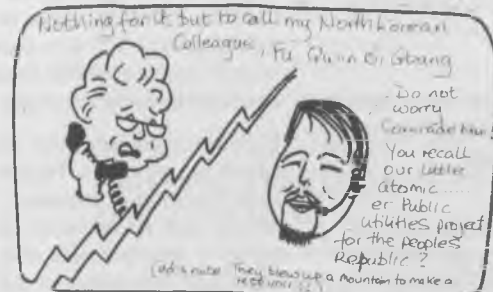 Nothing for it but to call my North Korean
Colleague, Fu Quin Bi Gbang
Do not
worry
Comrade
You recall
our little
atomic.....
er Public
utilities project
for the Peoples
Republic?
They blew up a mountain to make a